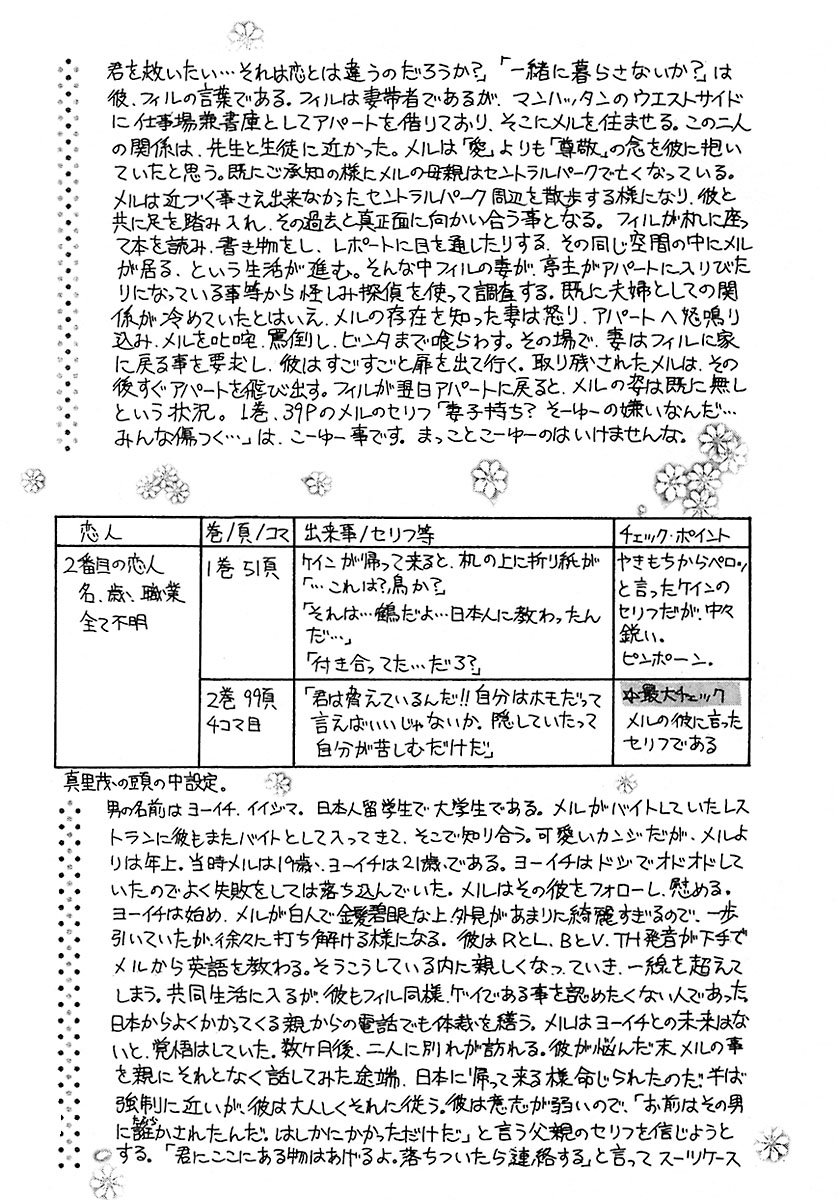 君を救いたい…それは恋とは違うのだろうか?」「一緒に暮らさないか?」は
彼、フィルの言葉である。フィルは妻帯者であるが、マンハッタンのウエストサイド
に仕事場兼書庫としてアパートを借りており、そこにメルを住ませる。この二人
の関係は、先生と生徒に近かった。メルは「愛」よりも「尊敬」の念を彼に抱い
ていたと思う。既にご承知の様にメルの母親はセントラルパークで亡くなっている。
メルは近づく事さえ出来なかったセントラルパーク周辺を散歩する様になり、彼と
共に足を踏み入れ、その過去と真正面に向かい合う事となる。フィルが机に座っ
て本を読み、書き物をし、レポートに目を通したりする、その同じ空間の中にメル
が居る、という生活が進む。そんな中フィルの妻が、亭主がアパートに入りびた
りになっている事等から怪しみ探偵を使って調査する。既に夫婦としての関
係が冷めていたとはいえ、メルの存在を知った妻は怒り、アパートへ怒鳴り
込み、メルを叱咤、罵倒し、ビンタまで喰らわす。その場で、妻はフィルに家
に戻る事を要求し、彼はすごすごと扉を出て行く。取り残されたメルは、その
後すぐアパートを飛び出す。フィルが翌日アパートに戻ると、メルの姿は既に無し
という状況。1巻、39Pのメルのセリフ「妻子持ち?そーゆーの嫌いなんだ…
みんな傷つく…」は、こーゆー事です。まっことこーゆーのはいけませんな。
恋人
巻/頁/コマ
出来事/セリフ等
チェック・ポイント
2番目の恋人
名、歳、職業
全て不明
1巻 51頁
ケインが帰って来ると、机の上に折り紙が
「…これは?鳥か?」
「それは…鶴だよ…日本人に教わったん
だ…」
「付き合ってた…だろ?」
やきもちからペロッ
と言ったケインの
セリフだが、中々
鋭い。
ピンポーン。
2巻 99頁
4コマ目
「君は脅えているんだ!!自分はホモだって
言えばいいじゃないか。隠していたって
自分が苦しむだけだ」
☆最大チェック
メルの彼に言った
セリフである
真里茂の頭の中設定。
男の名前はヨーイチ、イイジマ。日本人留学生で大学生である。メルがバイトしていたレス
トランに彼もまたバイトとして入ってきて、そこで知り合う。可愛いカンジだが、メルよ
りは年上。当時メルは19歳、ヨーイチは21歳である。ヨーイチはドジでオドオドして
いたのでよく失敗をしては落ち込んでいた。メルはその彼をフォローし、慰める。
ヨーイチは始め、メルが白人で金髪碧眼な上、外見があまりに綺麗すぎるので、一歩
引いていたが、徐々に打ち解ける様になる。彼はRとL、BとV、TH発音が下手で
メルから英語を教わる。そうこうしている内に親しくなっていき、一線を超えて
しまう。共同生活に入るが、彼もフィル同様、ゲイである事を認めたくない人であった。
日本からよくかかってくる親からの電話でも体裁を繕う。メルはヨーイチとの未来はな
いと、覚悟はしていた。数ヶ月後、二人に別れが訪れる。彼が悩んだ末メルの事
を親にそれとなく話してみた途端、日本に帰って来る様命じられたのだ。半ば
強制に近いが、彼は大人しくそれに従う。彼は意志が弱いので、「お前はその男
に誑かされたんだ。はしかにかかっただけだ」と言う父親のセリフを信じようと
する。「君にここにある物はあげるよ。落ちついたら連絡する」と言ってスーツケース